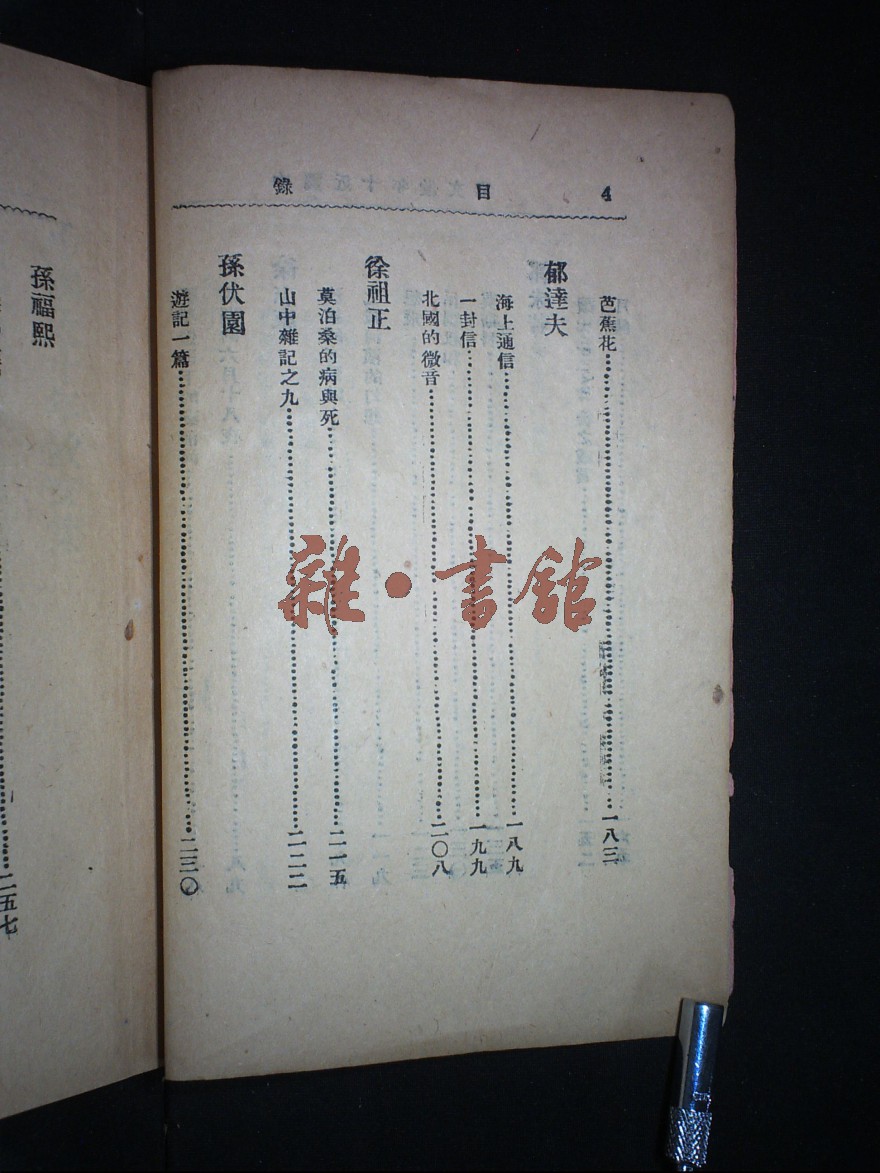 4 目 錄
芭蕉花 一八三
郁達夫
海上通信 一八九
一封信 一九九
北國的微音 二〇八
徐祖正
莫泊桑的病與死 二一五
山中雜記之九 二二二
孫伏園
遊記一篇 二三〇
孫福熙
二五七
雜·書館